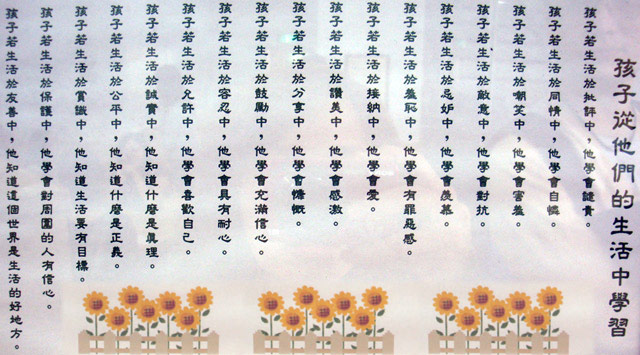 孩子從他們的生活中學習
孩子若生活於批評中，他學會譴責。
孩子若生活於同情中，他學會自憐。
孩子若生活於嘲笑中，他學會害羞。
孩子若生活於敵意中，他學會對抗。
孩子若生活於忌妒中，他學會羨慕。
孩子若生活於羞恥中，他學會有罪惡感。
孩子若生活於接納中，他學會愛。
孩子若生活於讚美中，他學會感激。
孩子若生活於分享中，他學會慷慨。
孩子若生活於鼓勵中，他學會充滿信心。
孩子若生活於容忍中，他學會具有耐心。
孩子若生活於允許中，他學會喜歡自己。
孩子若生活於誠實中，他知道什麼是真理。
孩子若生活於公平中，他知道什麼是正義。
孩子若生活於賞識中，他知道生活要有目標。
孩子若生活於保護中，他學會對周圍的人有信心。
孩子若生活於友善中，他知道這個世界是生活的好地方。